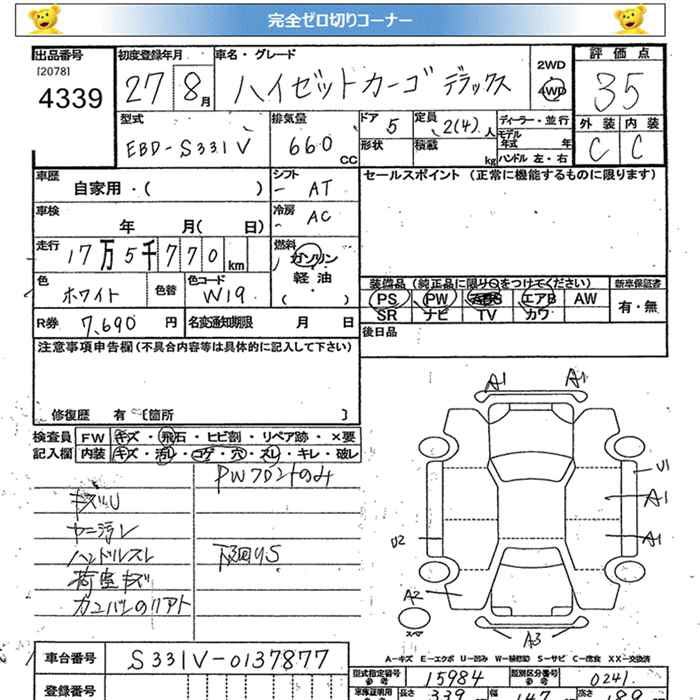 完全ゼロ切りコーナー
出品番号 初度登録年月 車名・グレード 2WD 評価点
[2078]
4339 27 8月 ハイゼットカーゴ デラックス 4WD 35
型式 排気量 ドア 5 定員 2(4)人 ディーラー・並行 外装 内装
モデル年式 年
EBD-S331V 660 CC 形状 積載 kg ハンドル 左・右 C C
車歴 シフト セールスポイント(正常に機能するものに限ります)
自家用・( ) - AT
車検 冷房
年 月( 日) AC
走行 燃料
17万5千770km ガソリン
軽油
( )
色 色替 色コード 装備品(純正品に限り○をつけてください) 新車保証書
ホワイト W19 PS PW ABS エアB AW 有・無
SR ナビ TV カワ
R券 7,690円 名変通知期限 月 日
後日品
注意事項申告欄(不具合内容等は具体的に記入して下さい)
修復歴 有〔箇所 〕
検査員 FW キズ・飛石・ヒビ割・リペア跡・×要
記入欄 内装 キズ・汚レ・コゲ・穴・スレ・キレ・破レ
PWフロントのみ
キズU
ヤニ汚レ
ハンドルスレ 下廻りS
荷室キズ
カンバレのリアト
A1 A1
U1
A1
U2 A1
A2
スペア
A3
A-キズ E-エクボ U-凹み W-補修跡 S-サビ C-腐食 XX-交換済
車台番号 S331V-0137877
型式指定番号 参考 15984 類別区分番号 参考 0241
登録番号 車庫証明用 長さ 339 幅 147 高さ 189